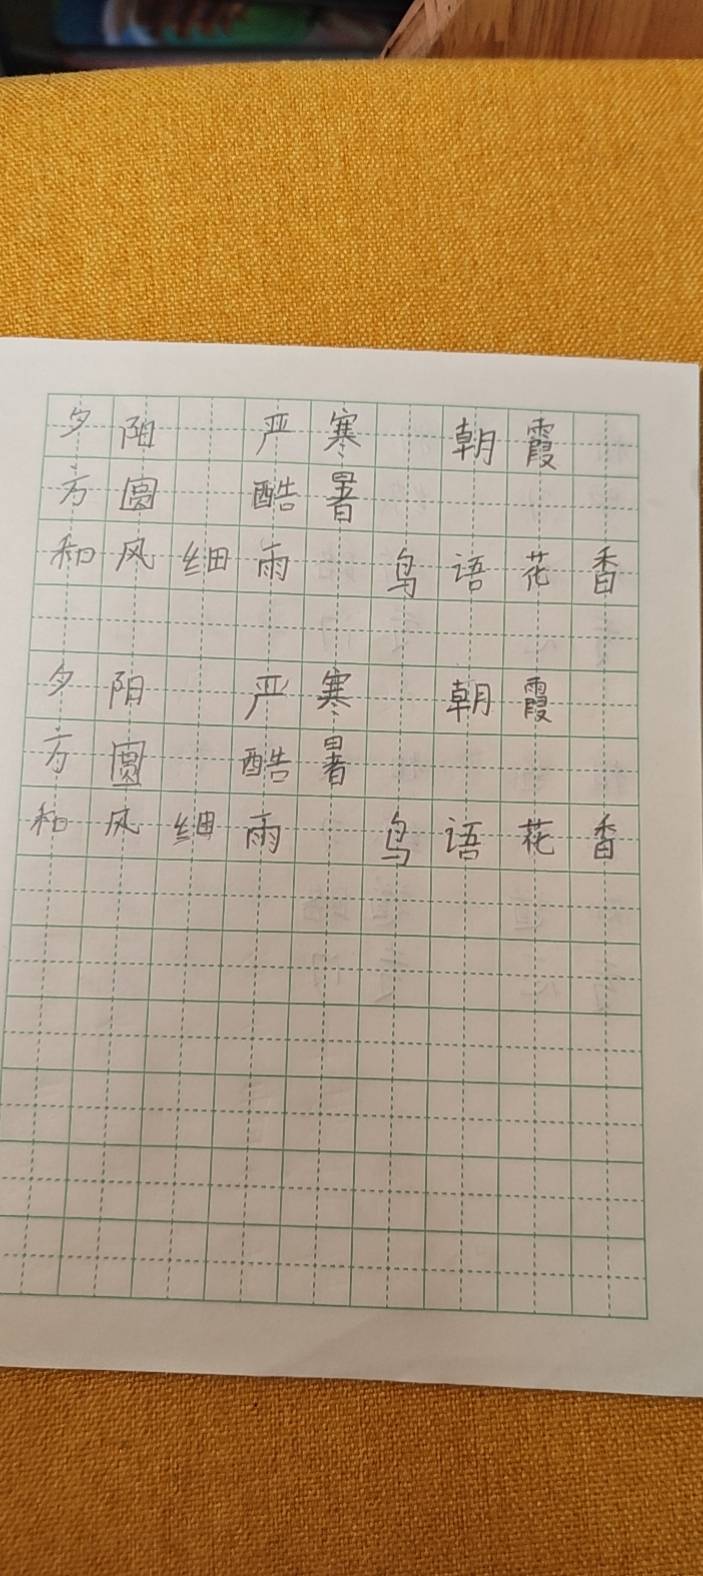 夕阳 严寒 朝霞
方圆 酷暑
和风细雨 鸟语花香
夕阳 严寒 朝霞
方圆 酷暑
和风细雨 鸟语花香